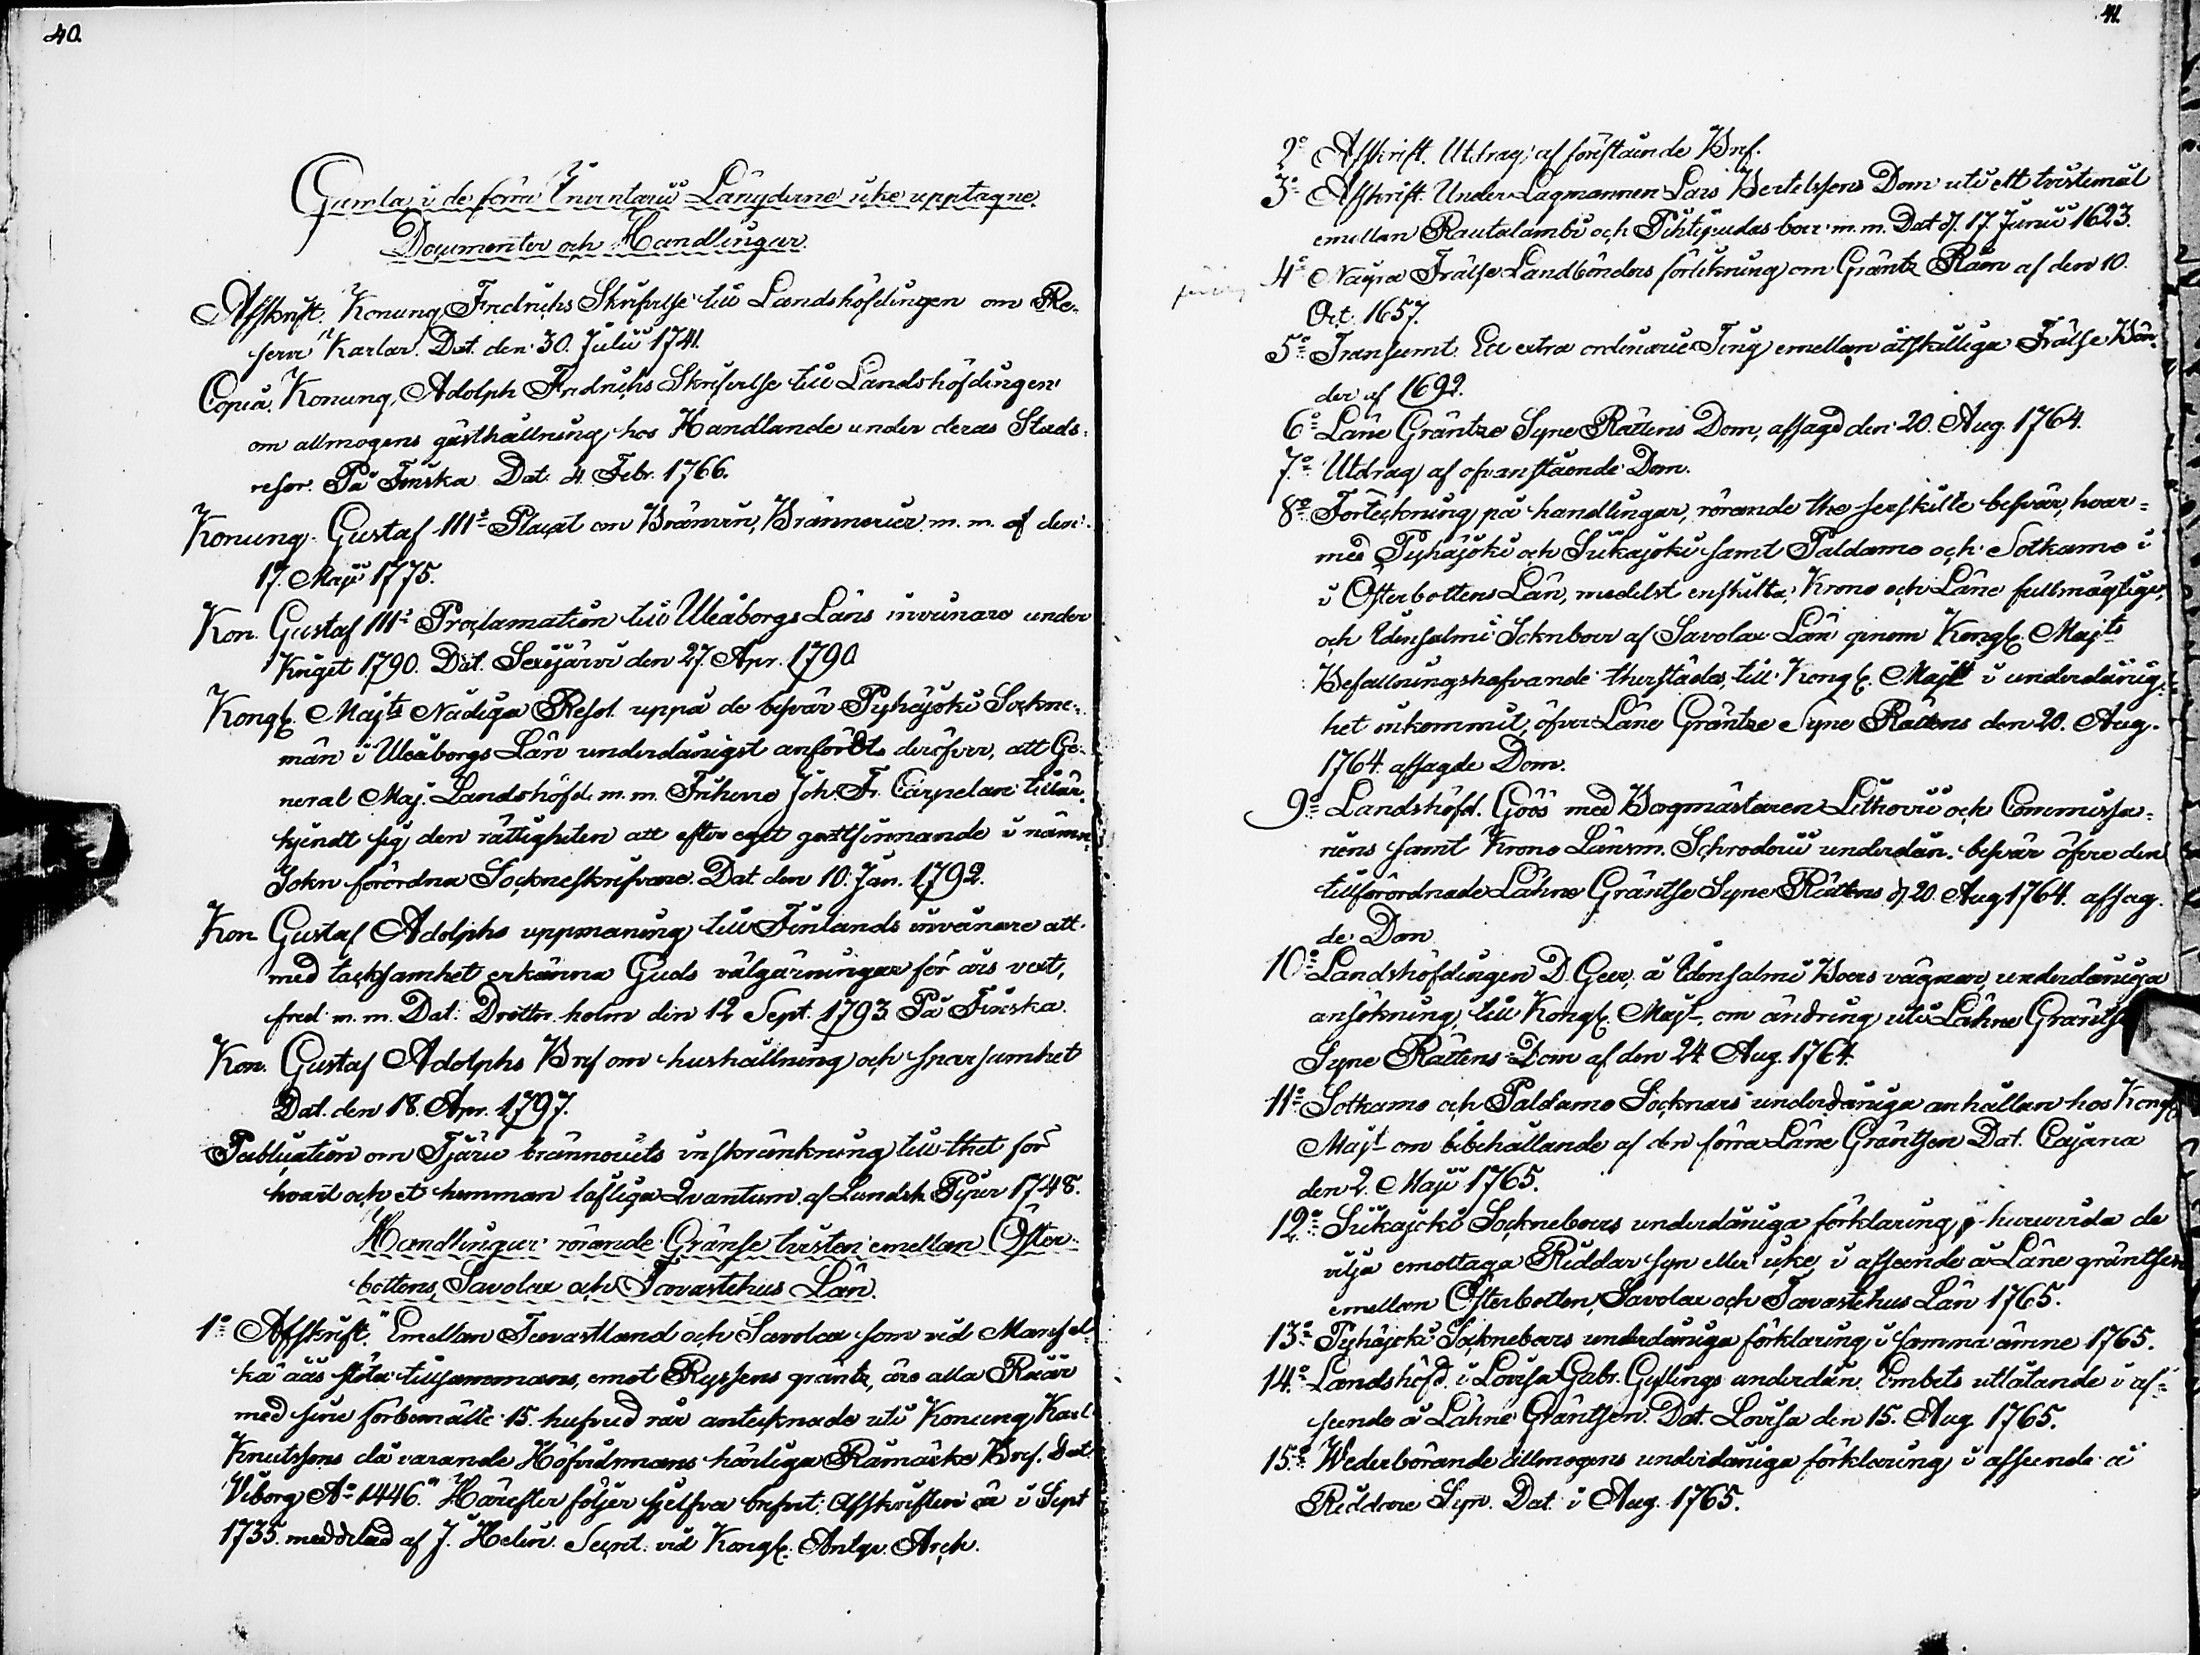 40.
Gamla i de förra Inventarii Längderne icke upptagne
Documenter och Handlingar.
Afskrift. Konung Fredrichs Skrifvelse till Landshöfdingen om Re-
serve Karlar. Dat. den 30. Julii 1741.
Copia. Konung Adolph Fredrichs Skrifvelse till Landshöfdingen
om allmogens gästhållning hos Handlande under deras Stads-
resor. På Finska Dat. 4. Febr. 1766.
Konung Gustaf III:s Placat om Bränvin, Brännerier m.m. af den
17. Maji 1775.
Kon. Gustaf III:s Proclamation till Uleåborgs Läns invånare under
Kriget 1790. Dat. den 27. Apr. 1790
Kongl. Maj:ts Nådiga Resol. uppå de besvär Pyhäjoki Sockne-
män i Uleåborgs Län underdånigst anfördt deröfver, att Ge-
neral Maj. Landshöfd. m.m. Friherre Joh. Fr. Carpelan tiller-
kjendt sig den rättigheten att efter eget godtfinnande i nämn.
Sokn förordna Sockneskrifvare. Dat. den 10. Jan. 1792.
Kon. Gustaf Adolphs uppmaning till Finlands invånare att
med tacksamhet erkänna Guds välgärningar för års vext,
fred m.m. Dat. Drottn.holm den 12 Sept. 1793 På Finska.
Kon. Gustaf Adolphs Bref om hushållning och sparsamhet
Dat. den 18. Apr. 1797.
Publication om Tjäru bränneriets inskränkning till thet för
hvart och et hemman lofliga Quantum. af Landsh. Piper 1748.
Handlingar rörande Gränse tvisten emellan Öster-
bottens, Savolax och Tavastehus Län.
1:o Afskrift. "Emellan Tavastland och Savolax som vid Mansel-
kä äås stöta tillsammans, emot Ryssens gräntz, äro alla Råår
med sine förbemälte 15. hufvud rår antecknade uti Konung Karl
Knutssons då varande Höfvidsmans härliga Råmärke Bref. Dat
Viborg A:o 1446." Härefter följer sjelfva brefvet. Afskriften är i Sept
1735. meddelad af J. Helin. Secret. vid Kongl. Antqv. Arch.
41.
2:o Afskrift. Utdrag af förestående Bref.
3:o Afskrift. Under Lagmannen Lars Bertelssons Dom uti ett tvistemål
emellan Rautalambi och Pihtipudas boer m.m. Dat. d. 17. Junii 1623.
4:o Några Frälse Landbönders förlikning om Gräntz Råen af den 10.
Oct. 1657.
5:o Transumt. Ett extra ordinarie Ting emellan åtskilliga Frälse Bön-
der af 1692.
6:o Läne Gräntze Syne Rättens Dom, afsagd den 20. Aug. 1764.
7:o Utdrag af ofvanstående Dom.
8:o Förteckning på handlingar, rörande the serskilte besvär, hvar-
med Pyhäjoki och Siikajoki samt Paldamo och Sotkamo i
i Österbottens Län, medelst enskilta, Krono och Läne fullmägtige,
och Idensalmi Soknboer af Savolax Län genom Kongl. Maj:ts
Befallningshafvande therstädes, till Kongl. Maj:t i underdånig-
het inkommit, öfver Läne Gräntze Syne Rättens den 20. Aug.
1764. afsagde Dom.
9:o Landshöfd. Göös med Borgmästaren Lithovii och Commissa-
riens samt Krono Länsm. Schroderii underdån. besvär öfver den
tillförordnade Lähne Gräntse Syne Rättens d. 20. Aug 1764. afsag-
de Dom
10:o Landshöfdingen D. Geer å Idensalmi Boers vägnar, underdåniga
ansökning till Kongl. Maj:t om ändring uti Lähne Gräntse
Syne Rättens Dom af den 24 Aug. 1764.
11:o Sotkamo och Paldamo Socknars underdåniga anhållan hos Kongl.
Maj:t om bibehållande af den förra Läne Gräntsen Dat. Cajana
den 2. Maji 1765.
12:o Siikajoki Socknebors underdåniga förklaring, huruvida de
vilja emottaga Riddar syn eller icke, i afseende å Läne gräntsen
emellan Österbotten, Savolax och Tavastehus Län 1765.
13:o Pyhäjoki Socknebors underdåniga förklaring i samma ämne 1765.
14:o Landshöfd. i Lovisa Gabr. Gyllings underdån. Embets utlåtande i af-
seende å Lähne Gräntsen. Dat. Lovisa den 15. Aug 1765.
15:o Wederbörande Allmogens underdåniga förklaring i afseende å
Riddare Syn. Dat. i Aug. 1765.